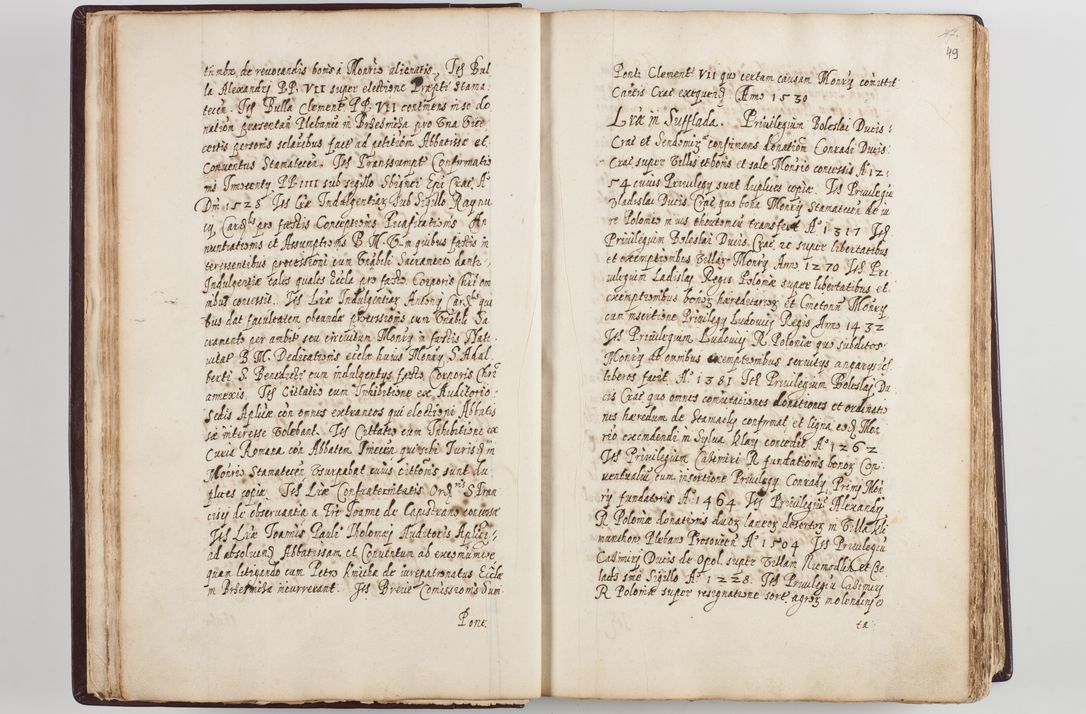 tū mbx, de revocandis bonis a Monrio alienatis. Its Bul
la Alexandry PP. VII super electione Præpti Stama
tecen. Its Bulla Clement. PP. VII continens in se do
nation præsentan Plebanie in Brsesmisa pro una
certis personis sclaribus fact ad petition Abbatissæ et
Conventus Stamatecen. Its Transsumpt Confirmatio
nis Innocenty PP. IIII sub sigillo Sbignei Epi Crac. Aº
Dni 1528 Its Lræ Indulgentiar, Sub Sigillo Raynu
ty, Card pro festis Conceptionis Præsentationis An
nuntiationis et Assumptionis B. M. V. in quibus festis in
teressentibus processioni cum Vnabili Sacramento dante
Indulgentiæ tales quales Eccla pro festo Corporis Chri om
nibus concessit. Its Lræ Indulgentiar Antony Card qui
bus dat facultatem obeundæ processionis cum Vnabili Sa
cramento per ambit seu circuitum Monry in festis Nati
vitat B. M. Dedicationis eclæ huius Monry S. Adal
berti S. Benedicti cum indulgentys festo Corporis Chri
annexis. Its Cittatio cum Inhibitione ex Auditorio
Sedis Aplicæ con omnes extraneos qui electioni Abbatis
sæ interesse volebant. Its Cittatio cum Inhibitione ex
Curia Romana con Abbatem Tinecen qui sibi Iuris in
Monrio Stamatecen usurpabat cuius citton̄is sunt du
plices copiæ. Its Lræ Confraternitatis Ord S. Fran
cisci de observantia a Fr Ioanne de Capistrano concessæ
Its Lræ Ioannis Pauli Tholomei Auditoris Aplici
ad absolven Abbatissam et Conventum ab excomunicæ
quam litigando cum Petro Kmitha de iurepatronatus Ecclæ
in Brsesmisa incurrerant. Its Breve Comissionis Sum.
Pont:
49
Ponti Clement VII quo certam causam Monry comittit
Cantis Crac exequend Anno 1530
Lræ in Sufflada. Privilegium Boleslai Ducis
Crac et Sendomiz confirmans donation Conradi Ducis
Crac super Villis et bonis et sale Monrio concessis Aº 12
54 cuius Privilegy sunt duplices copiæ. Its Privilegiu
Vladislai Ducis Crac quo bona Monry Stamatecen de iu
re Polonico in ius theutonicu transfert Aº 1317 Its
Privilegium Boleslai Ducis Crac. 2c super libertatibus
et exemptionibus Villar Monry Anno 1270 Its Pri
vilegium Ladislai Regis Poloniæ super libertatibus et
exemptionibus bonor hæreditarior et Cmetonu Monry
cum insertione Privilegy Ludovici Regis Anno 1432
Its Privilegium Ludovici R. Poloniæ quo subditos
Monry ab omnibus exemptionibus servitys angarys
liberos facit Aº 1381 Its Privilegium Boleslai Du
cis Crac quo omnes comutationes donationes et ordinatio
nes hæredum de Stamaelz confirmat et ligna eod Mon
rio excindendi in Sylva Klay concedit Aº 1262
Its Privilegium Casimiri R. fundationis bonor Con
ventualiu cum insertione Privilegy Conrady Primi Mon
ry fundatoris Aº 1464 Its Privilegiu Alexandry
R. Poloniæ donationis duor laneor desertor in Villa Kli
manthow Plebano Prosovien Aº 1504 Its Privilegiu
Casimiry Ducis de Opol super Villam Niemodlin et Be
lads sine Sigillo Aº 1228. Its Privilegiu Casimiry
R. Poloniæ super resignatione sort agror molendini e
ta: